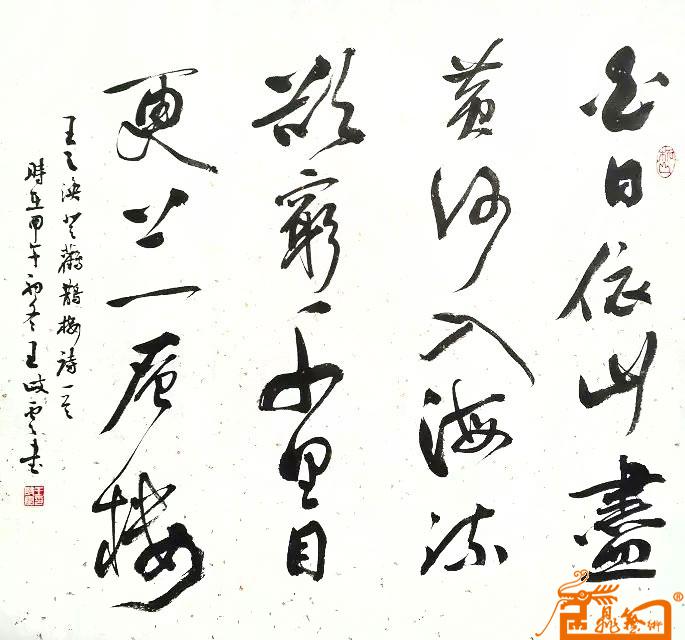 白日依山盡
黄河入海流
欲窮千里目
更上一层楼
王之涣登鹳鹊楼诗一首
時在甲午初冬王政雲书